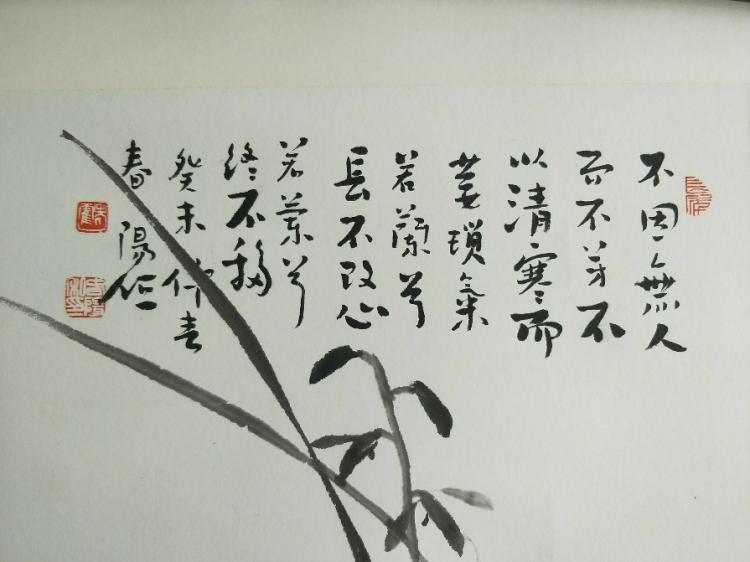 不因無人
而不芳不
以清寒而
萎瑣氣
若蘭兮
長不改心
若蘭兮
終不移
癸未仲春
春陽作